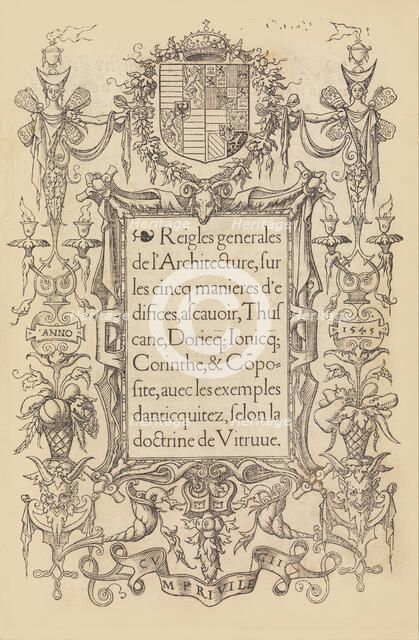 Reigles generales
de l'Architecture, sur
les cincq manieres d'e
difices, ascauoir, Thus
cane, Doricq; Ionicq;
Corinthe, & Cōpo-
site, auec les exemples
danticquitez, selon la
doctrine de Vitruue.
ANNO
1545
CVM PRIVILEGII
Heritage
Heritage
Heritage
Heritage